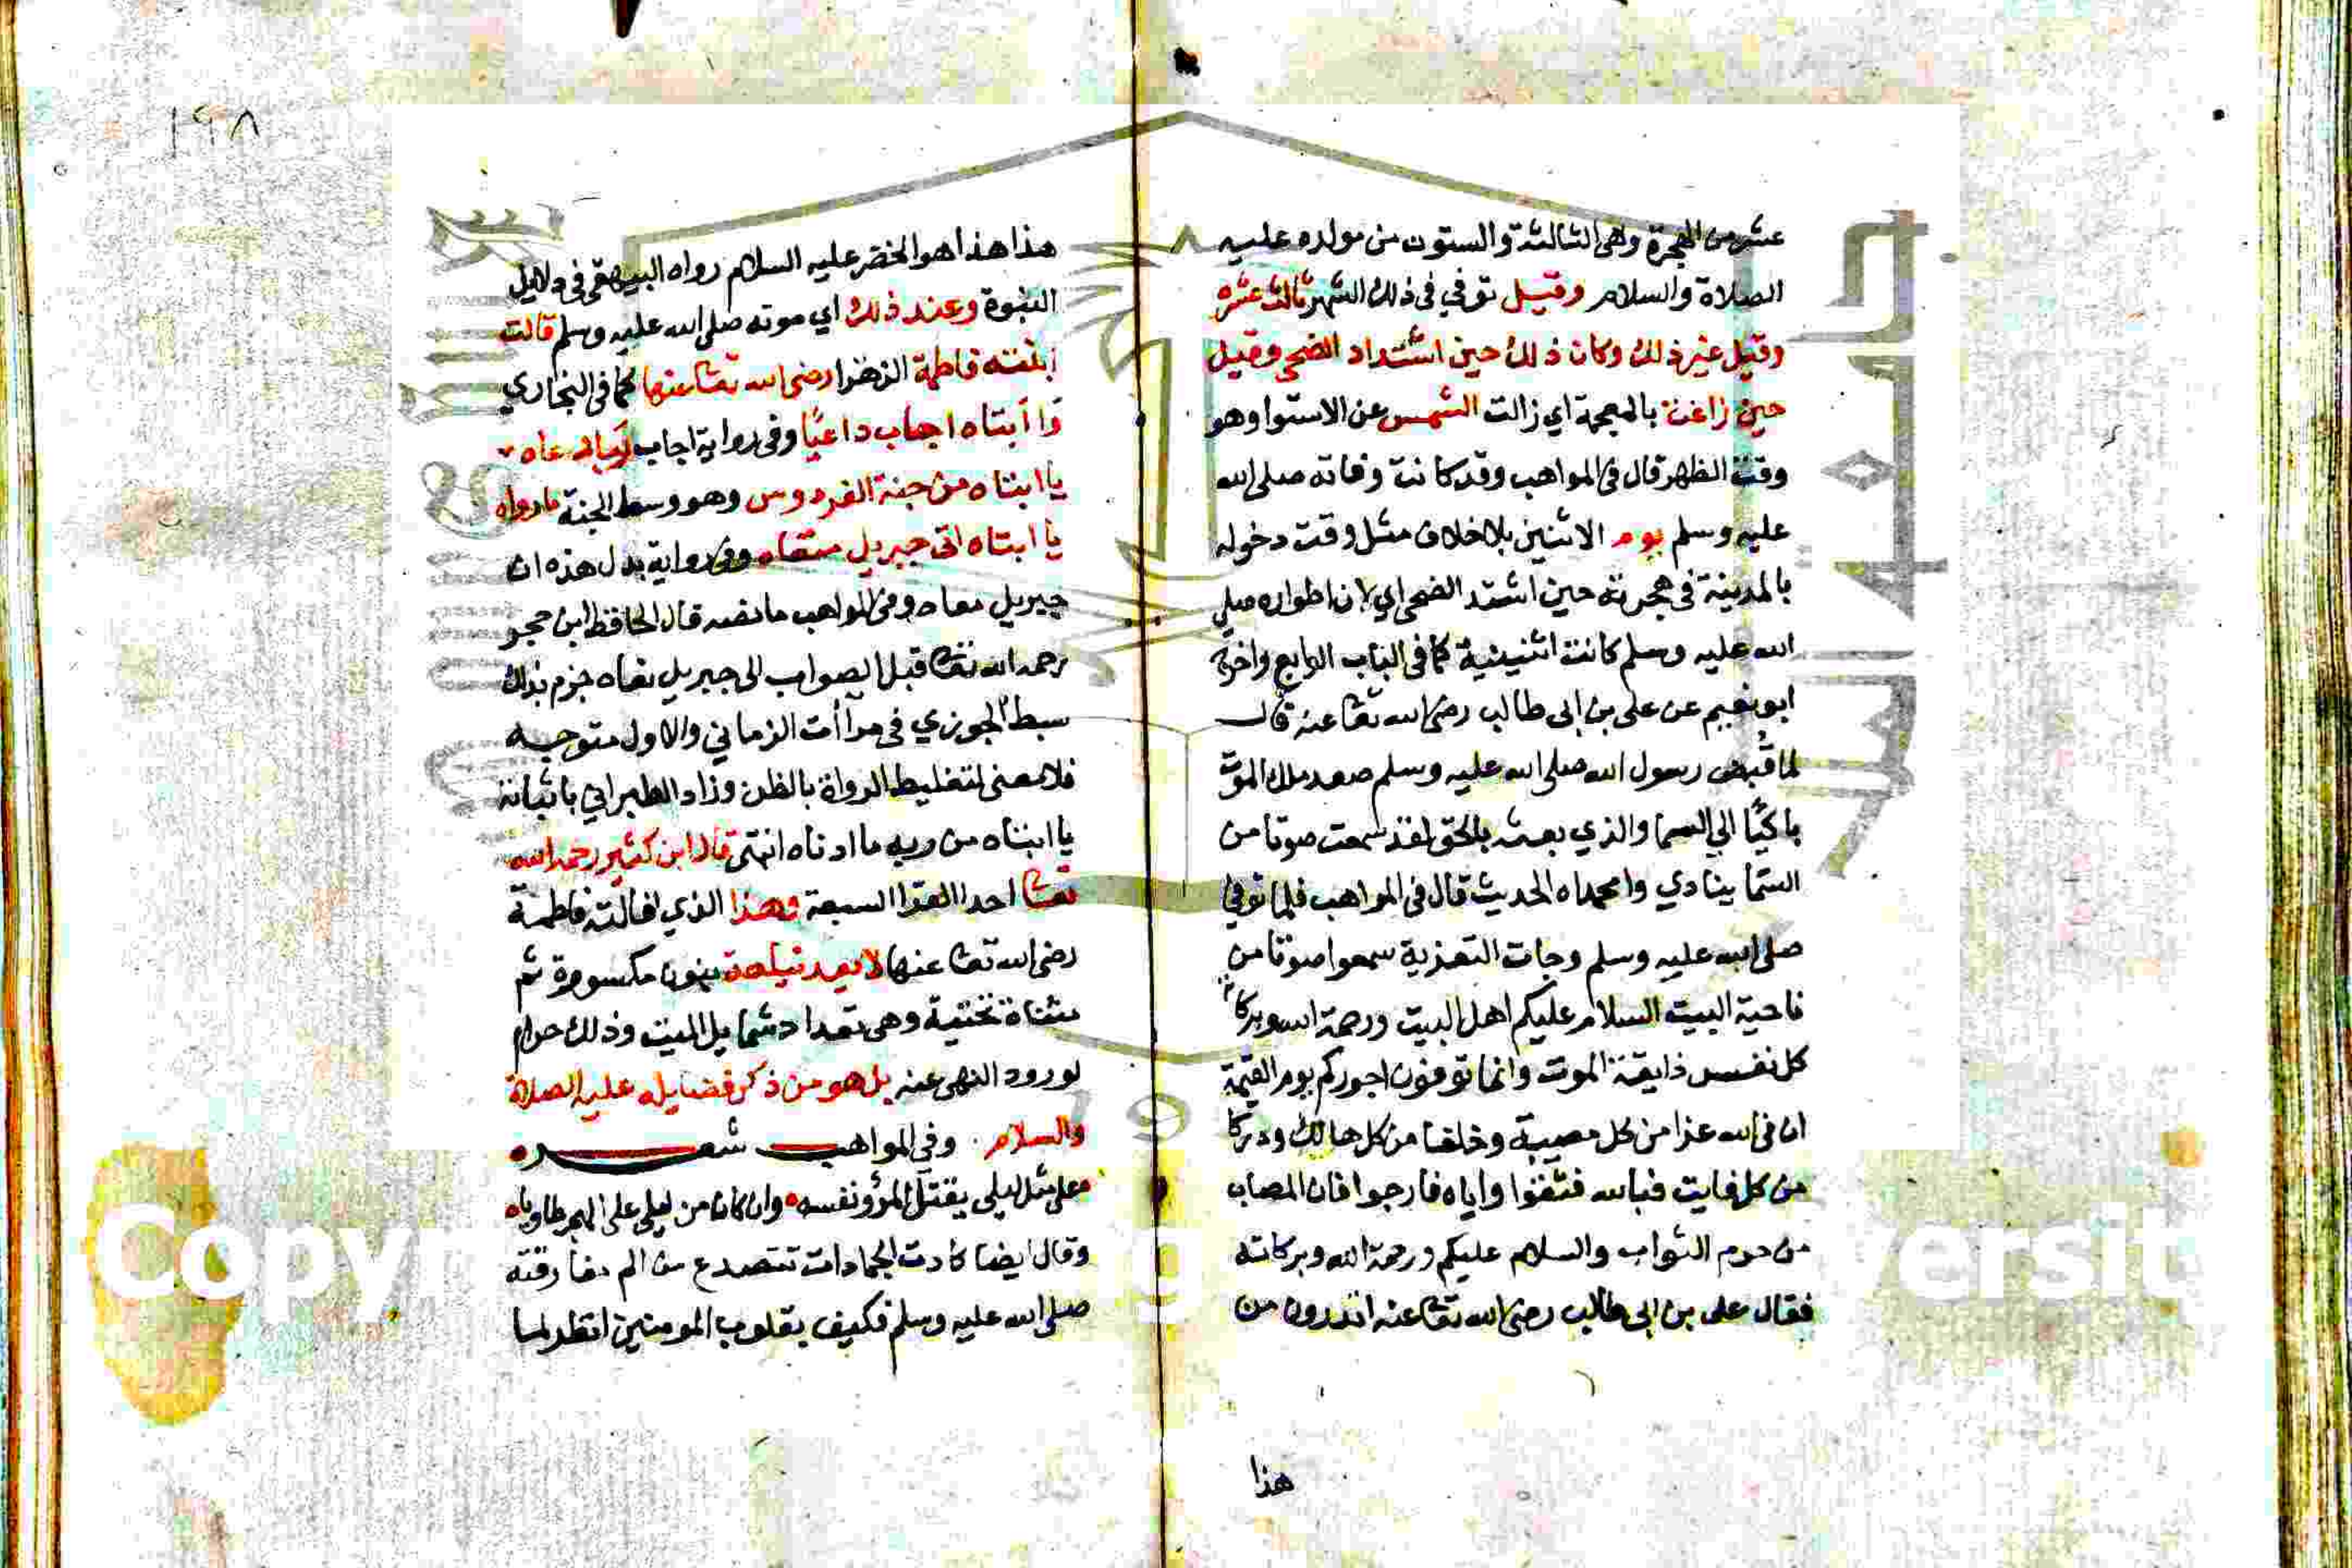 عشر من الهجرة وهى الثالثة والستون من مولده عليه
الصلاة والسلام وقيل توفي فى ذلك الشهر ثالث عشره
وقيل غير ذلك وكان ذلك حين اشتداد الضحى وقيل
حين زاغت بالمعجمة اي زالت الشمس عن الاستوا وهو
وقت الظهر قال فى المواهب وقد كانت وفاته صلى الله
عليه وسلم يوم الاثنين بلا خلاف مثل وقت دخوله
بالمدينة فى هجرته حين اشتد الضحى اي لان اطواره صلى
الله عليه وسلم كانت اثنينية كما فى الباب الرابع واخرج
ابو نعيم عن على بن ابى طالب رضى الله تعا عنه قال
لما قُبض رسول الله صلى الله عليه وسلم صعد ملك الموت
باكيًا الي السما والذي بعثه بالحق لقد سمعت صوتا من
السما ينادي وا محمداه الحديث قال فى المواهب فلما توفي
صلى الله عليه وسلم وجات التعزية سمعوا صوتا من
ناحية البيت السلام عليكم اهل البيت ورحمة الله وبركاته
كل نفس ذايقة الموت وانما توفون اجوركم يوم القيمة
ان فى الله عزا من كل مصيبة وخلفا من كل هالك ودركا
من كل فايت فبالله فثقوا واياه فارجوا فان المصاب
من حرم الثواب والسلام عليكم ورحمة الله وبركاته
فقال على بن ابى طالب رضى الله تعا عنه اتدرون من
هذا
١٩٨
هذا هذا هو الخضر عليه السلام رواه البيهقى فى دلايل
النبوة وعند ذلك اي موته صلى الله عليه وسلم قالت
ابنته فاطمة الزهرا رضى الله تعا عنها كما فى البخاري
وا ابتاه اجاب داعيًا وفى رواية اجاب ربا دعاه
يا ابتاه من جنة الفردوس وهو وسط الجنة ماواه
يا ابتاه اتى جبريل منعاه وفى رواية بدل هذه ان
جبريل معاه وفى المواهب ما نصه قال الحافظ ابن حجر
رحمه الله تعا قبل الصواب الى جبريل نعاه جزم بذلك
سبط الجوزي فى مرآات الزماني والاول متوجه
فلا معنى لتغليط الرواة بالظن وزاد الطبراني باثباتة
يا ابتاه من ربه ما ادناه انتهى قال ابن كثير رحمه الله
تعا احد القرا السبعة وهذا الذي قالته فاطمة
رضى الله تعا عنها لا يعد نياحة بنون مكسورة ثم
مثناة تحتية وهى تعداد شمايل الميت وذلك حرام
لورود النهى عنه بل هو من ذكر فضايله عليه الصلاة
والسلام وفى المواهب شعره
على مثل ليلى يقتل المرؤ نفسه وان كان من ليلى على الهجر طاوياه
وقال ايضا كادت الجمادات تتصدع من الم مفارقته
صلى الله عليه وسلم فكيف بقلوب المومنين انظر لما